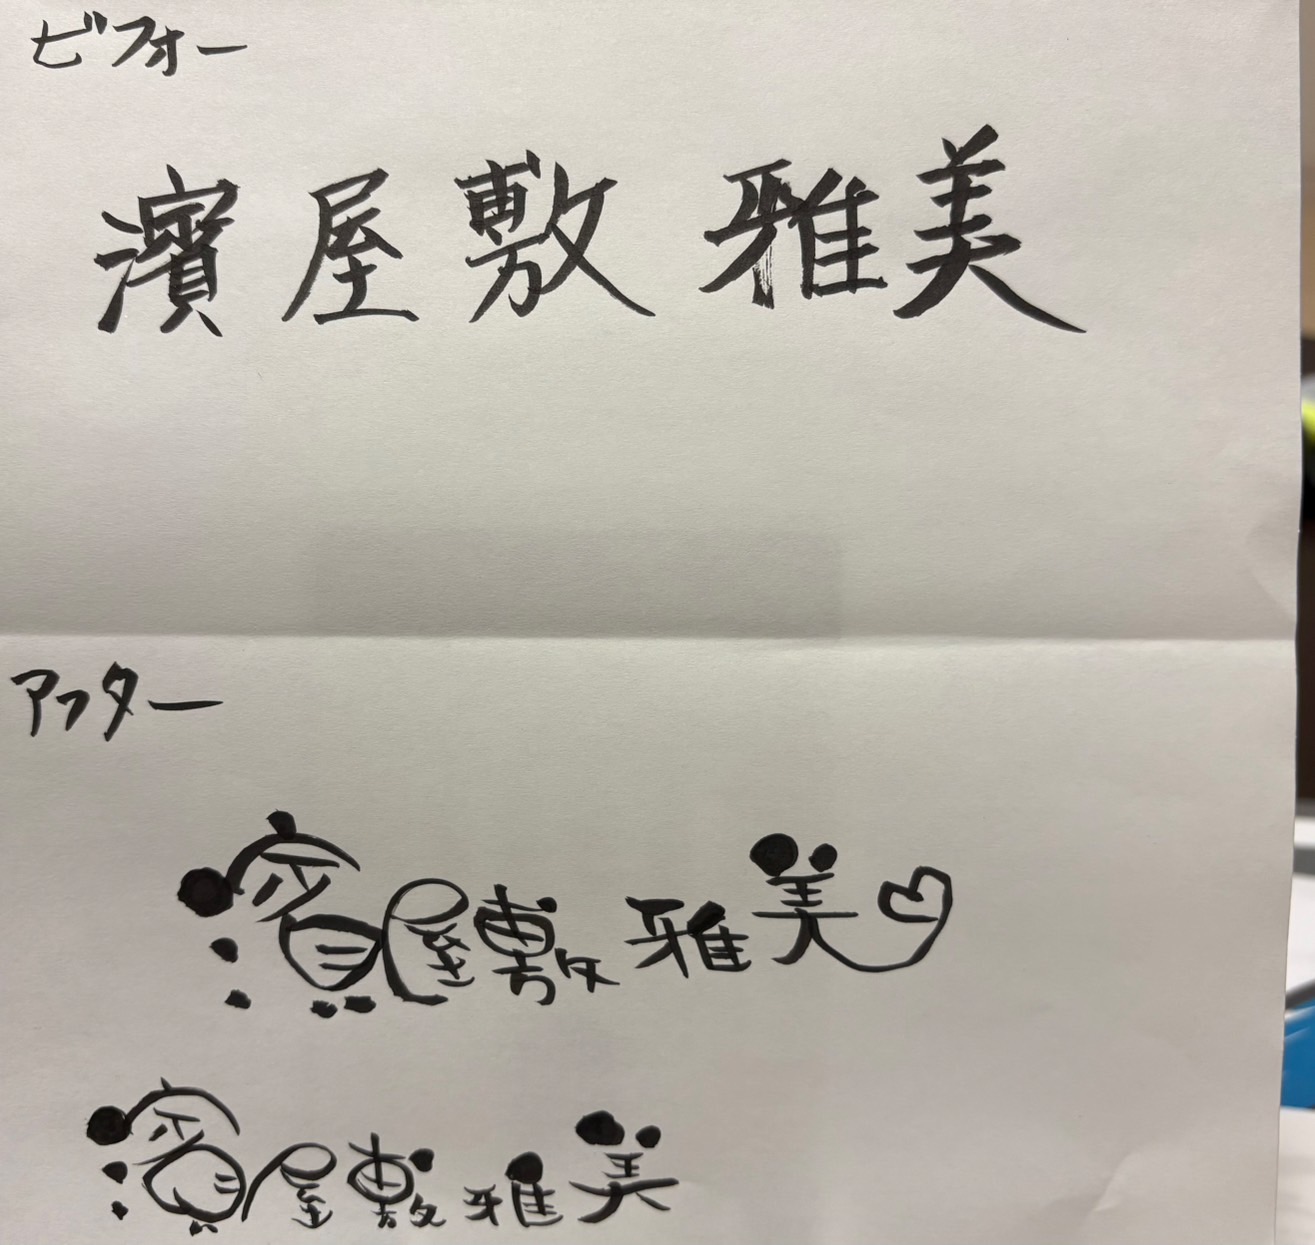 ビフォー
濱屋敷 雅美
アフター
濱屋敷 雅美
濱屋敷 雅美